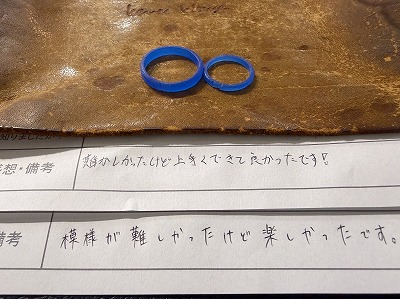 感想・備考
難かしかったけど上手くできて良かったです!
備考
模様が難しかったけど楽しかったです。